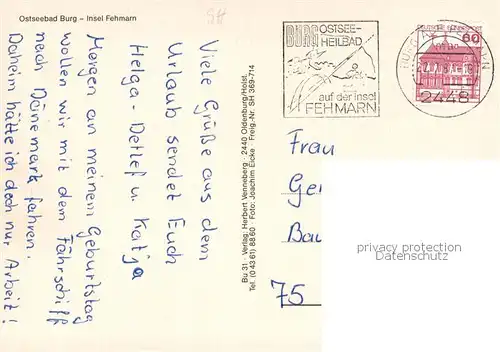 Ostseebad Burg – Insel Fehmarn
Viele Grüße aus dem
Urlaub sendet Euch
Helga - Detlef u. Katja
Morgen an meinem Geburtstag
wollen wir mit dem Fährschiff
nach Dänemark fahren.
Daheim hätte ich doch nur Arbeit!
Bu 31 · Verlag: Herbert Venneberg · 2440 Oldenburg/Holst.
Tel. (0 43 61) 88 60 · Foto: Joachim Eicke · Freig.-Nr. SH 369-714
BURG OSTSEE-
HEILBAD
auf der Insel
FEHMARN
60
2448
Frau
Ge
Bau
75
privacy protection
Datenschutz